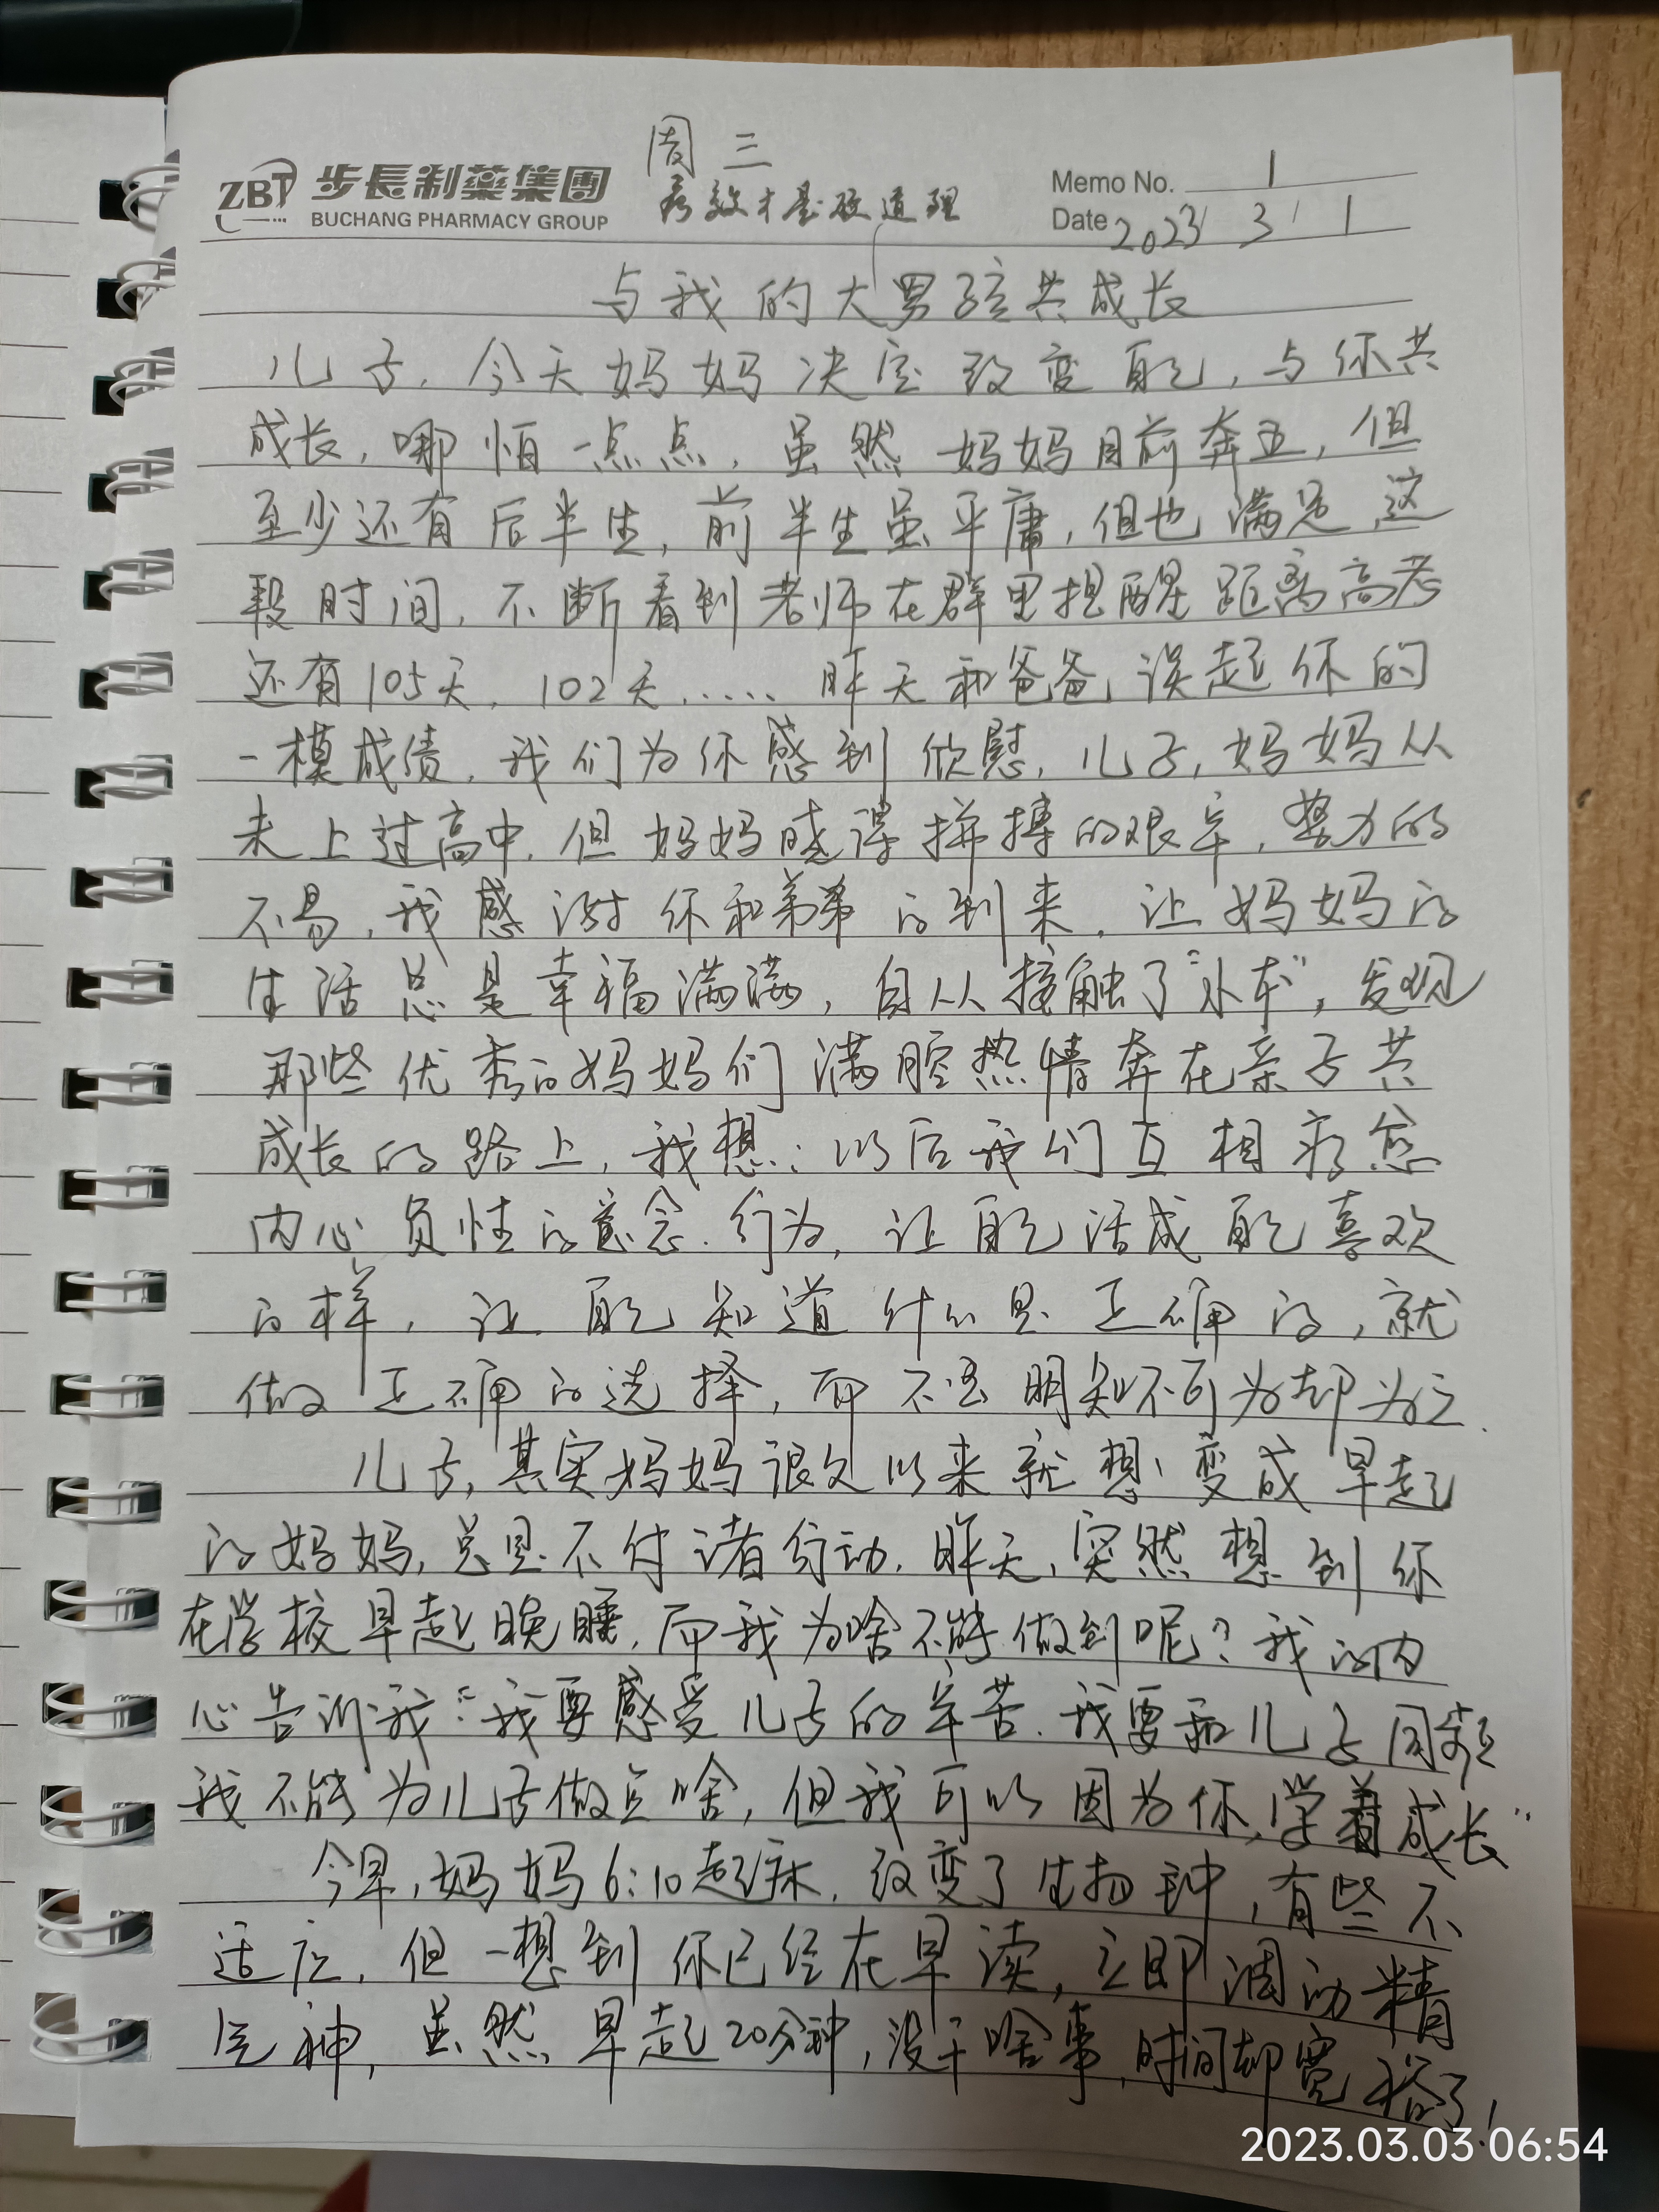 周三
ZBT 步長制藥集團 疗效才是硬道理 Memo No. 1
BUCHANG PHARMACY GROUP Date 2023 / 3 / 1
与我的大男孩共成长
儿子,今天妈妈决定改变自己,与你共
成长,哪怕一点点,虽然妈妈目前奔五,但
至少还有后半生,前半生虽平庸,但也满足,这
段时间,不断看到老师在群里提醒距离高考
还有105天,102天..... 昨天和爸爸谈起你的
一模成绩,我们为你感到欣慰,儿子,妈妈从
未上过高中,但妈妈晓得拼搏的艰辛,努力的
不易,我感谢你和弟弟的到来,让妈妈的
生活总是幸福满满,自从接触了“小本”,发现
那些优秀的妈妈们满腔热情奔在亲子共
成长的路上,我想:以后我们互相疗愈
内心负性的意念、行为,让自己活成自己喜欢
的样,让自己知道什么是正确的,就
做正确的选择,而不要明知不可为却为之.
儿子,其实妈妈很久以来就想变成早起
的妈妈,总是不付诸行动.昨天,突然想到你
在学校早起晚睡,而我为啥不能做到呢?我的内
心告诉我:“我要感受儿子的辛苦.我要和儿子同频
我不能为儿子做点啥,但我可以因为你,学着成长”
今早,妈妈6:10起床,改变了生物钟,有些不
适应,但一想到你已经在早读,立即调动精
气神,虽然早起20分钟,没干啥事,时间却宽裕了!
2023.03.03 06:54